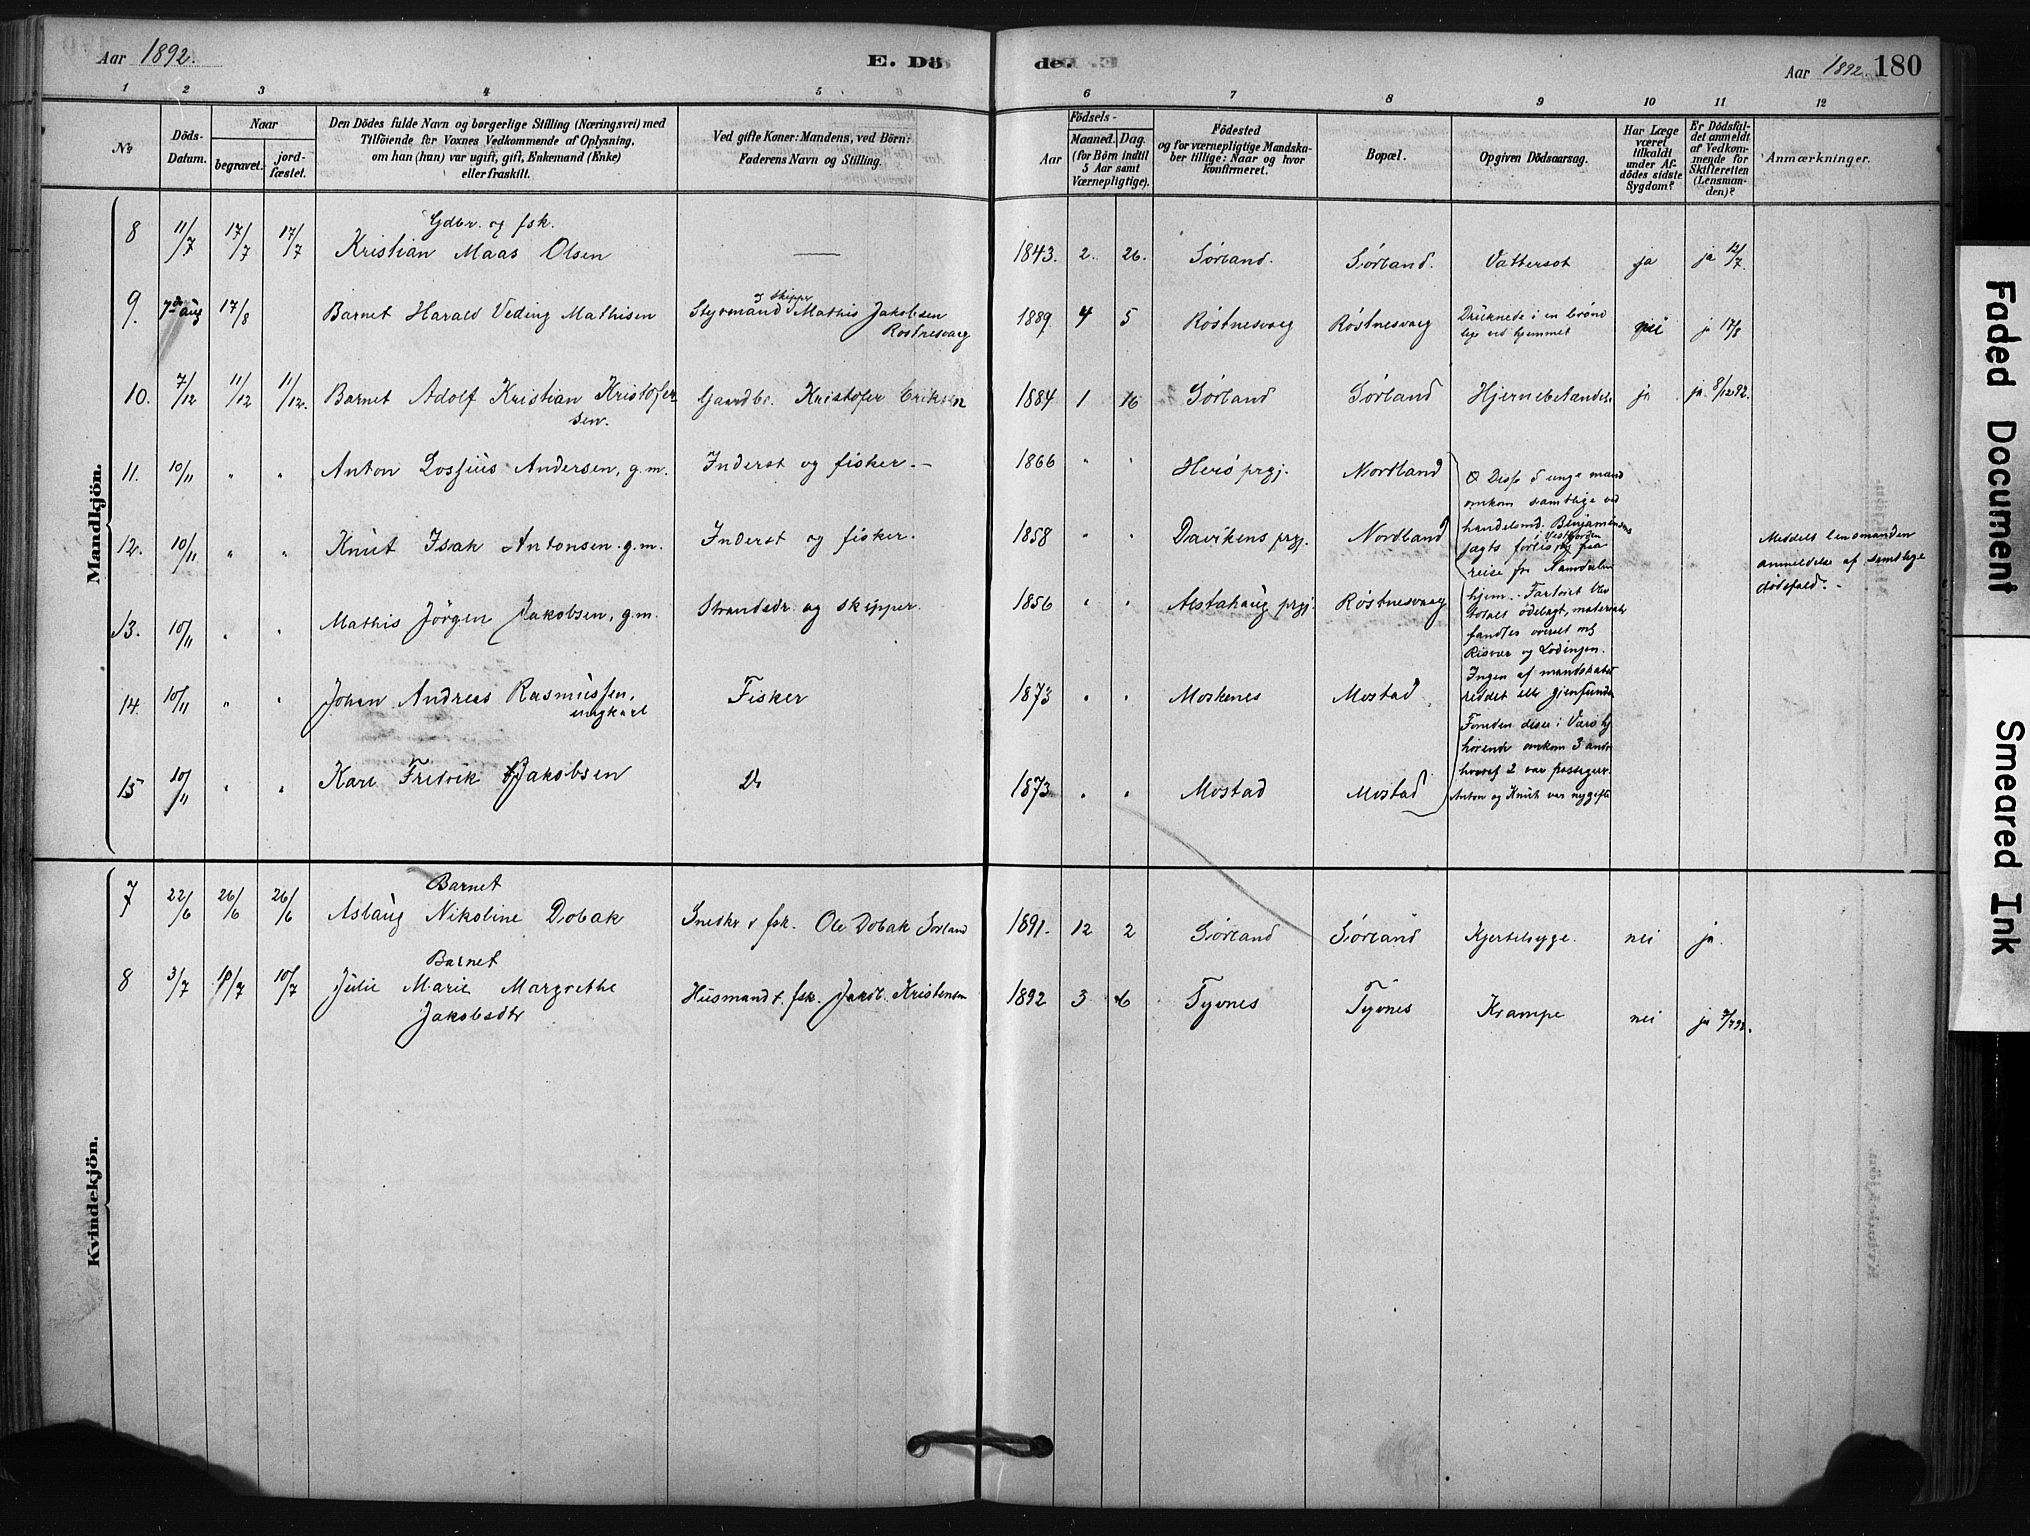 Aar 1892.
E. Dö de.
Aar 1892. 180
1 2 3 4 5 6 7 8 9 10 11 12
No
Döds-Datum.
Naar
begravet.
jord-fæstet.
Den Dödes fulde Navn og borgerlige Stilling (Næringsvei) med
Tilföiende for Voxnes Vedkommende af Oplysning,
om han (hun) var ugift, gift, Enkemand (Enke)
eller fraskilt.
Ved gifte Koner: Mandens, ved Börn:
Faderens Navn og Stilling.
Födsels-
Aar
Maaned. Dag.
(for Börn indtil
5 Aar samt
Værnepligtige).
Födested
og for værnepligtige Mandska-
ber tillige: Naar og hvor
konfirmeret.
Bopæl.
Opgiven Dödsaarsag.
Har Læge
været
tilkaldt
under Af-
dödes sidste
Sygdom?
Er Dödsfal-
det anmeldt
af Vedkom-
mende for
Skifteretten
(Lensman-
den)?
Anmærkninger.
Mandkjön.
Gdbr. og fsk.
8 11/7 17/7 17/7 Kristian Maas Olsen — 1843. 2. 26. Sørland. Sørland. Vattersot ja ja 12/7.
og skipper
9. 7de aug 17/8 Barnet Harald Veding Mathisen Styrmand Mathis Jakobsen 1889 4 5 Røstnesvaag Røstnesvaag Druknede i en brønd nei ja 17/8
Røstnesvaag ved hjemmet
10. 7/12 11/12 11/12. Barnet Adolf Kristian Kristofer- Gaardbr. Kristofer Eriksen 1884 1 16 Sørland Sørland Hjernebetændelse ja ja 8/12 92.
sen.
11. 10/11 " " Anton Lossius Andersen, g.m. Inderst og fisker. — 1866 " " Herø prgj. Nordland
Disse 5 unge mænd
omkom samtlige ved
handelsmd. Benjaminsens
12. 10/11 " " Knut Isak Antonsen. g.m. Inderst og fisker. 1858 " " Davikens prgj. Nordland
i Vestfjorden
jagts forlis paa
reise fra Namdalen
Meddelt lensmanden
anmeldelse af samtlige
dödsfald. -
13. 10/11 " " Mathis Jörgen Jakobsen, g.m. Strandsdr og skipper. 1856 " " Alstahaug prgj. Røstnesvaag
hjem. Fartøiet blev
totalt ödelagt, materialer
fandtes
Risvær og Lodingen.
14. 10/11 " " Johan Andreas Rasmussen, Fisker 1873 " " Moskenes Mostad
ungkarl
Ingen af mandskabet
reddet eller gjenfunden
Foruden disse i Værø hj.
hørende omkom 3 andre
15 10/11 " " Karl Fredrik Jakobsen Do 1873 " " Mostad Mostad
hvoraf 2 var passagerer.
Anton og Knut var nygifte
Kvindekjön.
Barnet
7 22/6 26/6 26/6 Aslaug Nikoline Dobak Snedkr & fsk. Ole Dobak Sørland 1891. 12 2 Sørland Sørland Kjertelsyge. nei ja.
Barnet
8 3/7 10/7 10/7 Julie Marie Margrethe Husmand & fsk. Jakob Kristensen 1892 3 6 Tyvnes Tyvnes Krampe nei ja 7/7 92.
Jakobsdtr
Faded Document
Smeared Ink